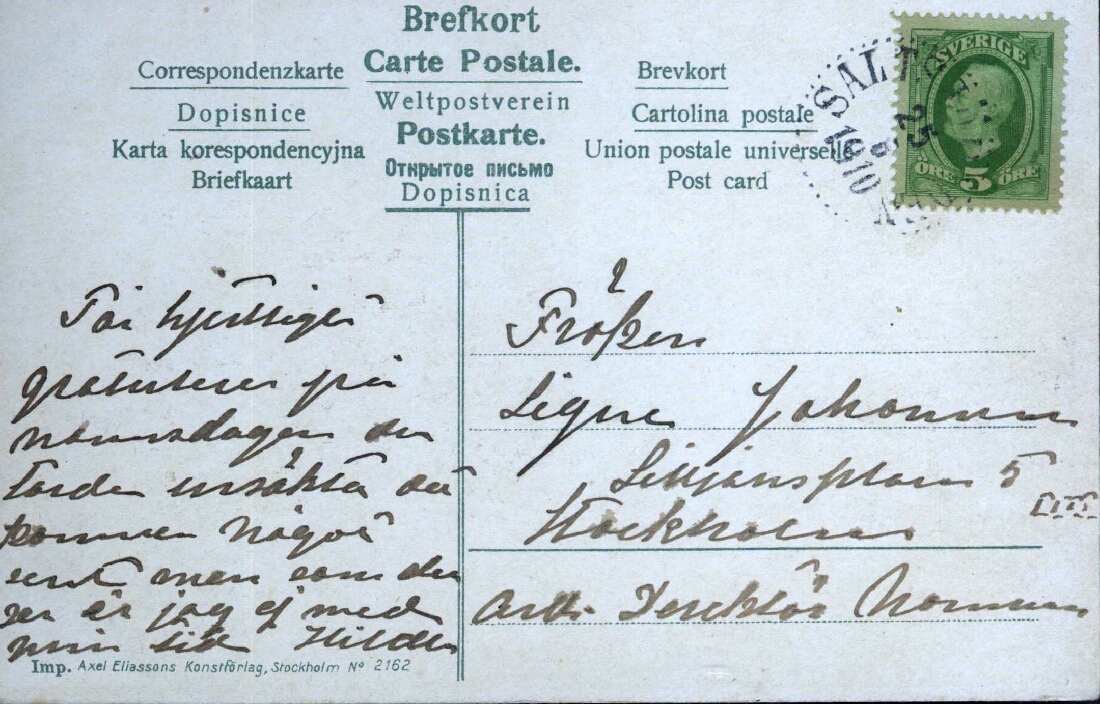 Brefkort
Carte Postale.
Weltpostverein
Postkarte.
Открытое письмо
Dopisnica
Correspondenzkarte
Dopisnice
Karta korespondencyjna
Briefkaart
Brevkort
Cartolina postale
Union postale universelle
Post card
SVERIGE
ÖRE 5 ÖRE
SALT
25
1910
Får hjertligt
gratulera på
namnsdagen du
torde ursäkta att
kommer något
sent men som du
ser är jag ej med
min tid Hilda
Fröken
Signe
Stockholm
Imp. Axel Eliassons Konstförlag, Stockholm No 2162